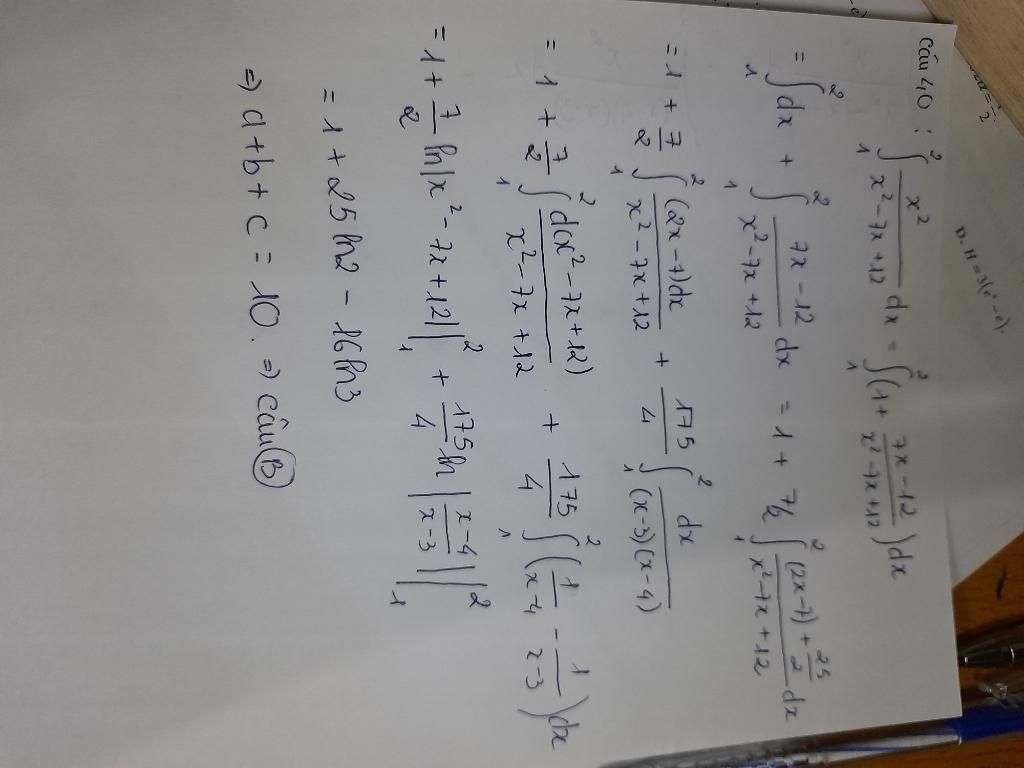 Câu 40 : ∫₁² x²/(x² - 7x + 12) dx = ∫₁² (1 + (7x - 12)/(x² - 7x + 12)) dx
= ∫₁² dx + ∫₁² (7x - 12)/(x² - 7x + 12) dx = 1 + 7/2 ∫₁² ((2x - 7) + 25/2)/(x² - 7x + 12) dx
= 1 + 7/2 ∫₁² (2x - 7)dx/(x² - 7x + 12) + 175/4 ∫₁² dx/((x - 3)(x - 4))
= 1 + 7/2 ∫₁² d(x² - 7x + 12)/(x² - 7x + 12) + 175/4 ∫₁² (1/(x - 4) - 1/(x - 3)) dx
= 1 + 7/2 ln|x² - 7x + 12| |₁² + 175/4 ln |(x - 4)/(x - 3)| |₁²
= 1 + 25 ln2 - 16 ln3
⇒ a + b + c = 10. ⇒ câu B
D. H = 3(e² - e).